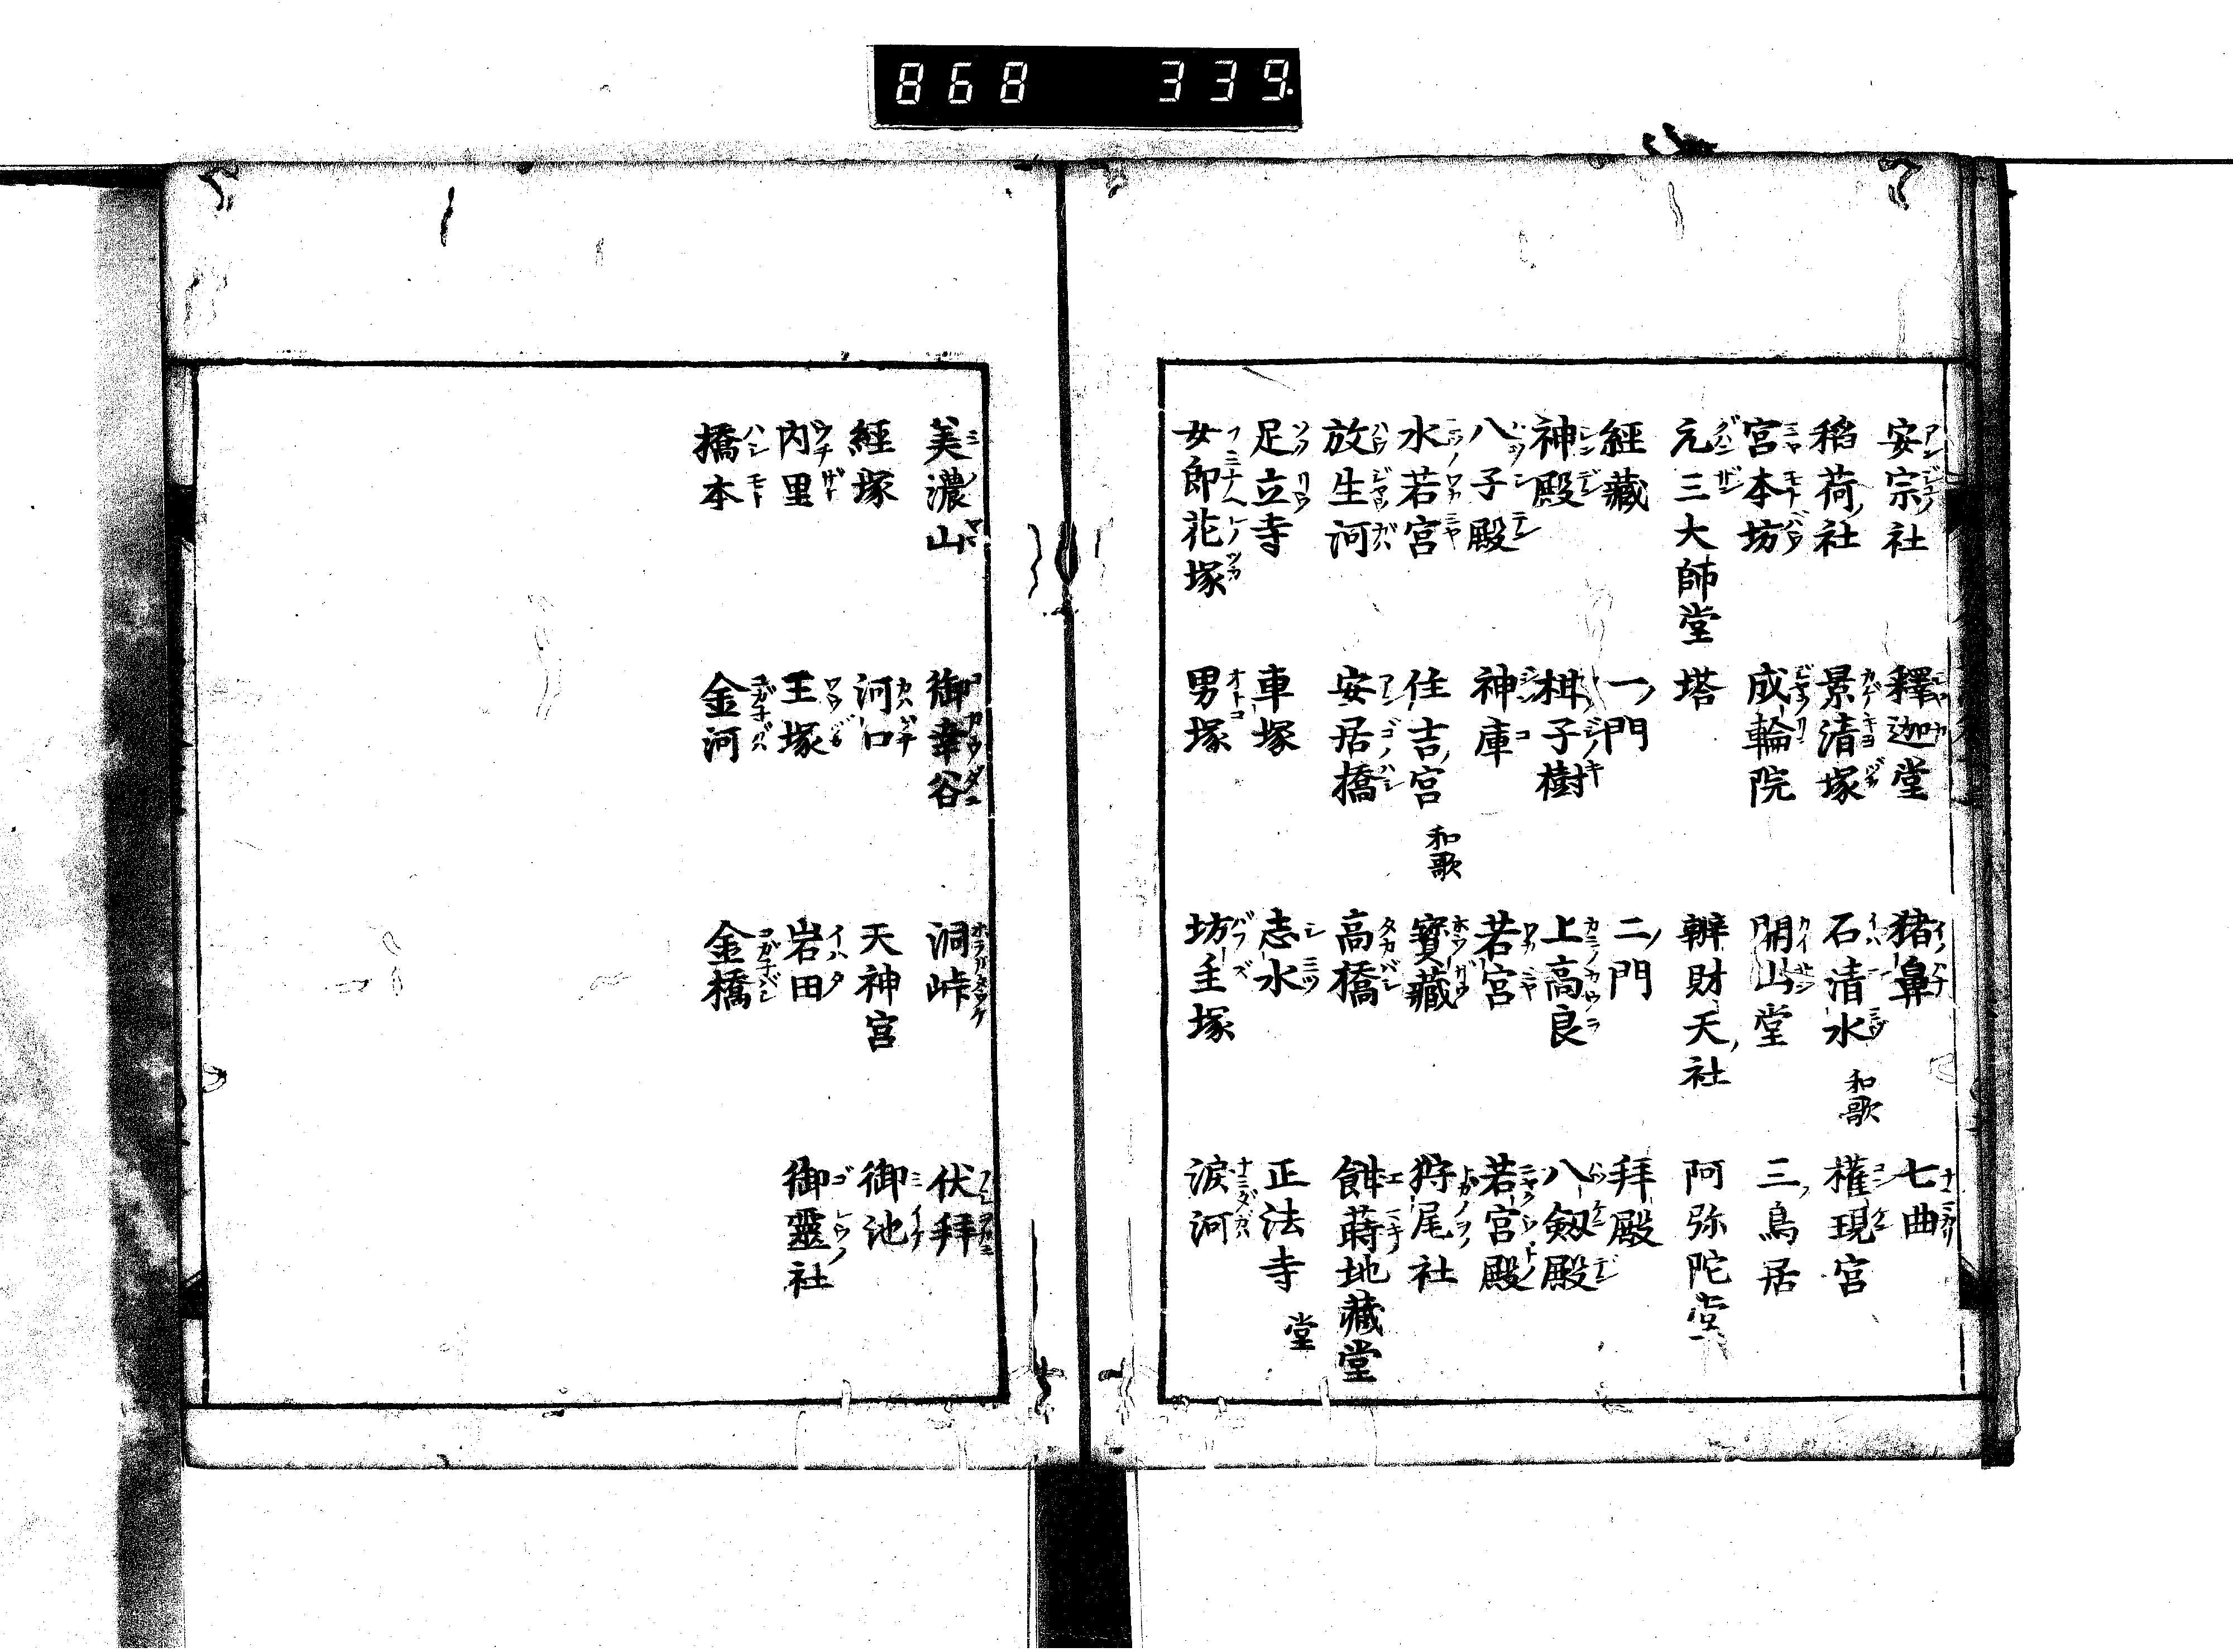 868 339.
安宗社 釋迦堂 猪鼻 七曲
稻荷社 景清塚 石清水 和歌 權現宮
宮本坊 成輪院 開山堂 三鳥居
元三大師堂 塔 辨財天社 阿弥陀堂
經藏 一ノ門 二ノ門 拜殿
神殿 柑子樹 上高良 八劔殿
八子殿 神庫 若宮 若宮殿
水若宮 住吉宮 和歌 寳藏 狩尾社
放生河 安居橋 高橋 餠蒔地藏堂
足立寺 車塚 志水 正法寺 堂
女郎花塚 男塚 坊主塚 涙河
美濃山 御幸谷 洞峠 伏拜
經塚 河口 天神宮 御池
内里 王塚 岩田 御靈社
橋本 金河 金橋